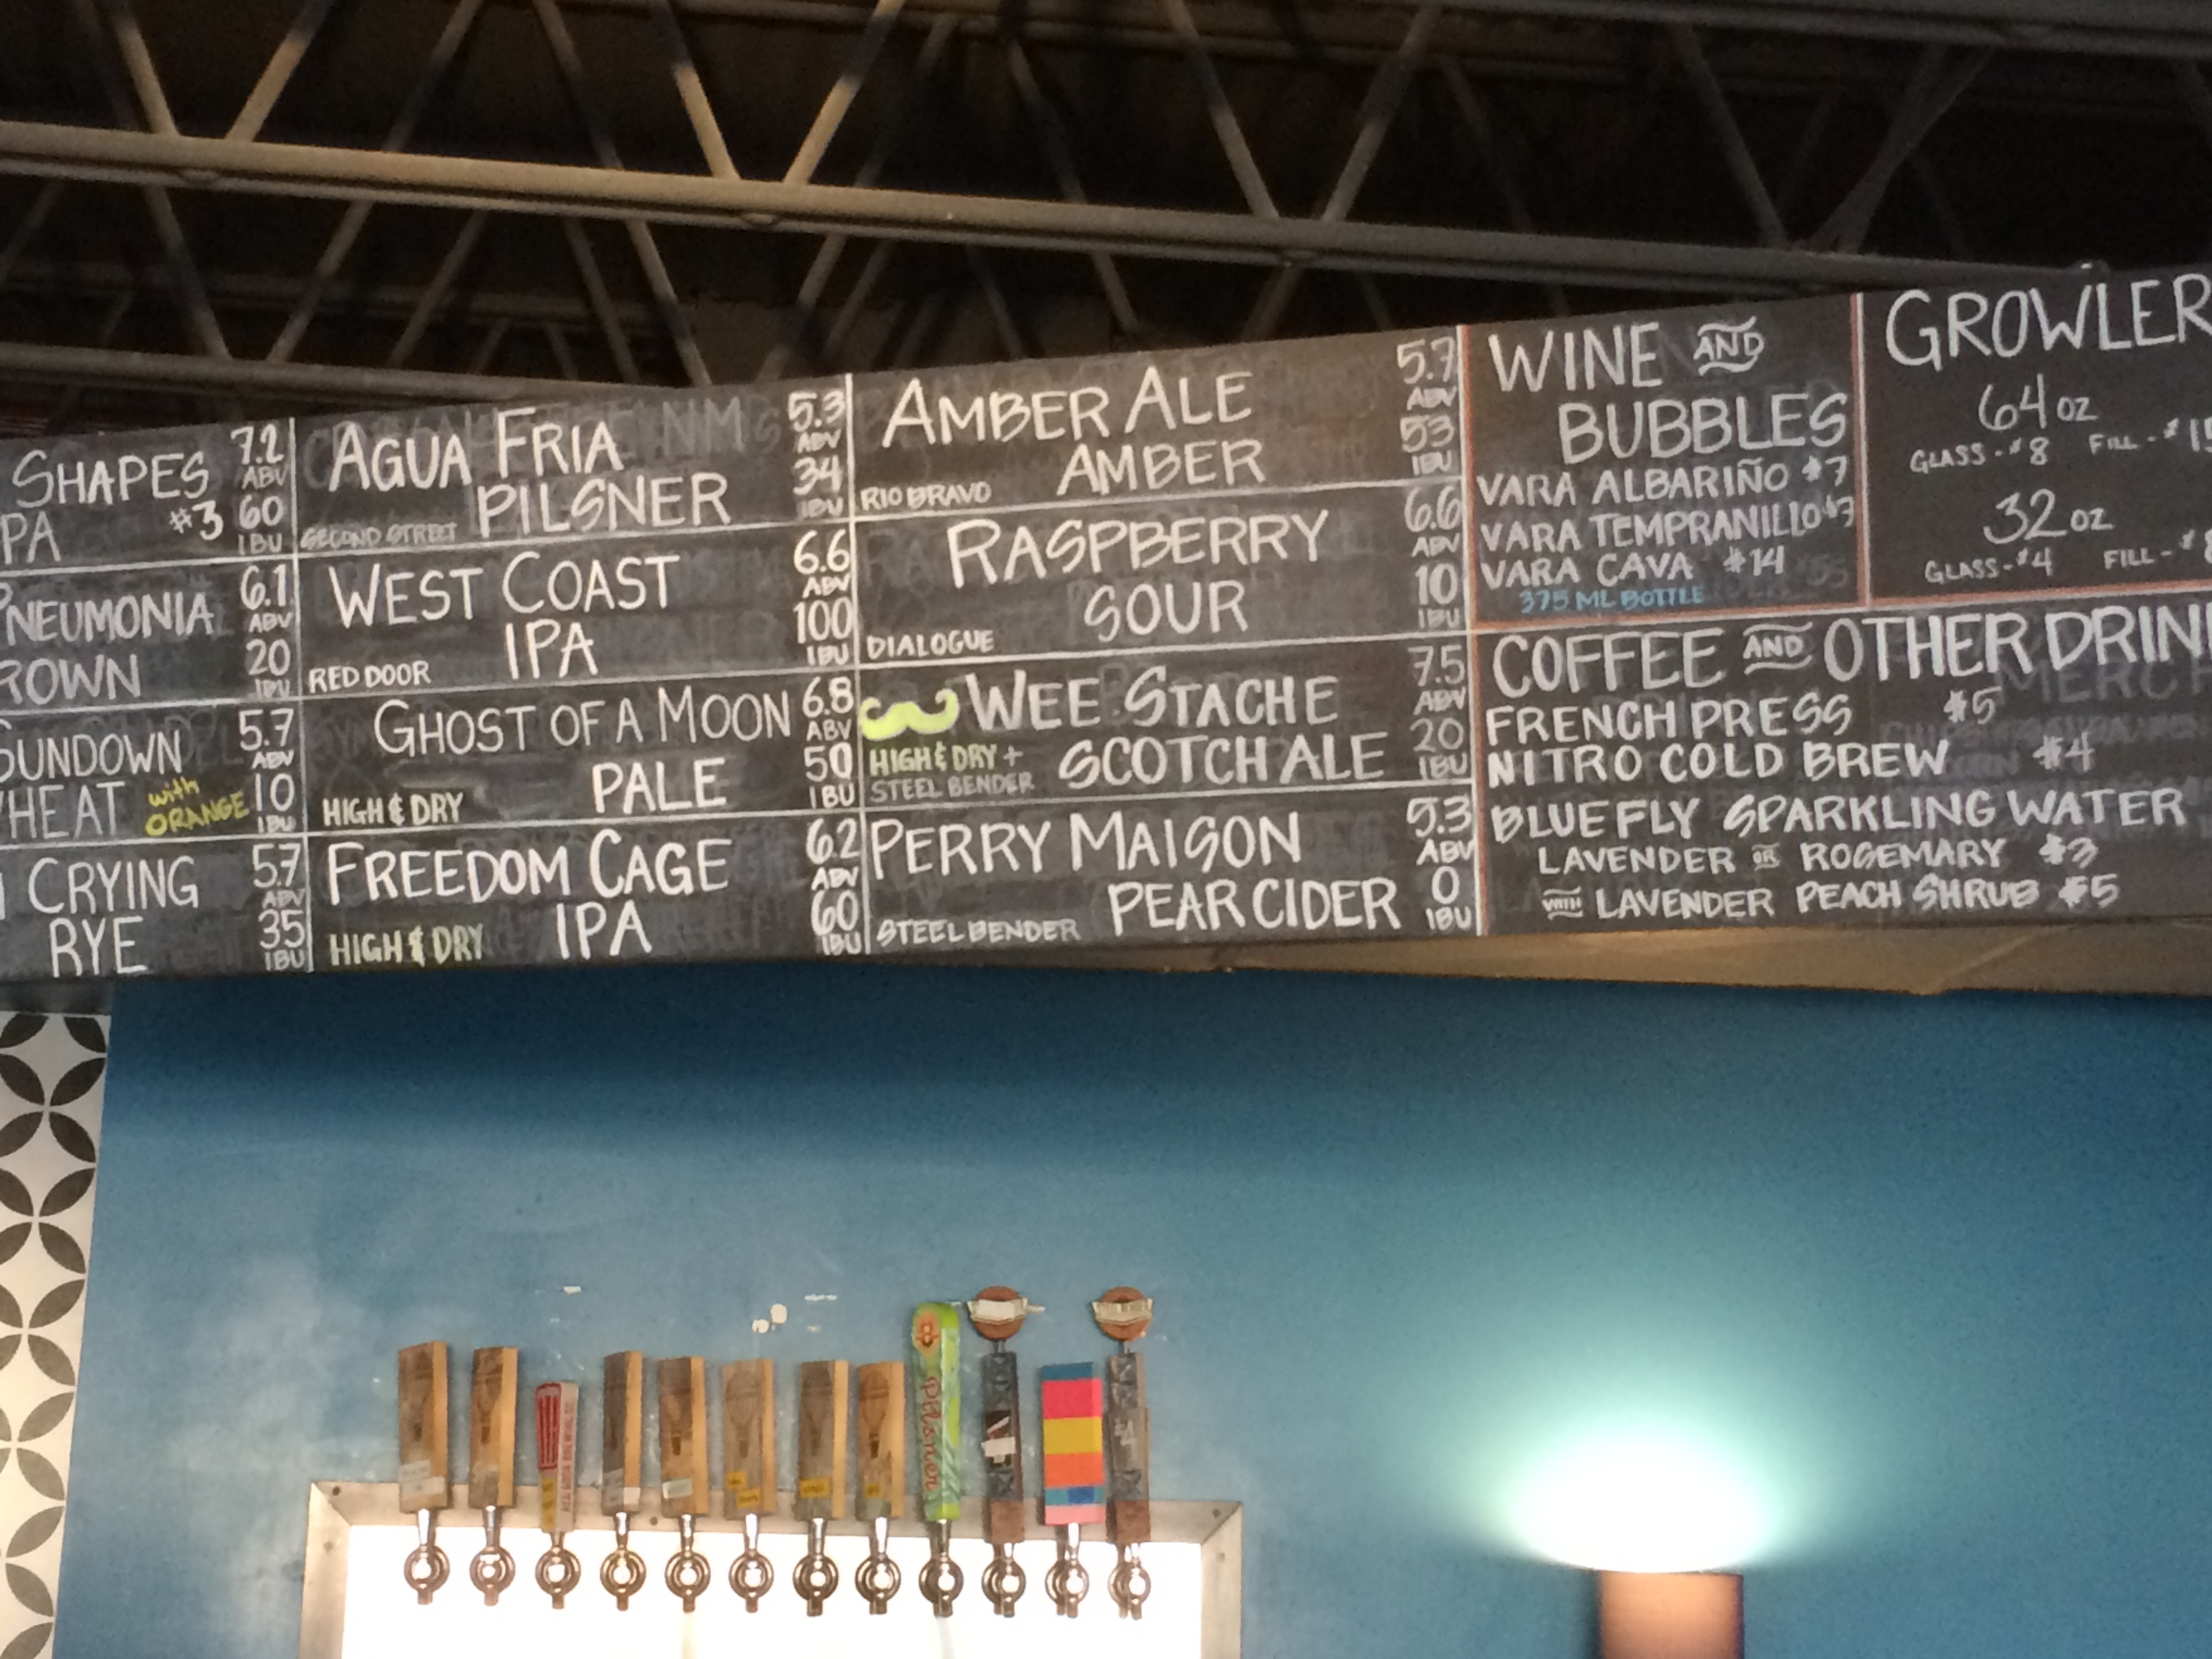 SHAPES 7.2 ABV
PA #3 60 IBU
PNEUMONIA 6.1 ABV
ROWN 20 IBU
SUNDOWN 5.7 ABV
HEAT with ORANGE 10 IBU
CRYING 5.7 ABV
RYE 35 IBU
AGUA FRIA 5.3 ABV
SECOND STREET PILSNER 34 IBU
WEST COAST 6.6 ABV
RED DOOR IPA 100 IBU
GHOST OF A MOON 6.8 ABV
HIGH & DRY PALE 50 IBU
FREEDOM CAGE 6.2 ABV
HIGH & DRY IPA 60 IBU
AMBER ALE 5.7 ABV
RIO BRAVO AMBER 53 IBU
RASPBERRY 6.6 ABV
DIALOGUE SOUR 10 IBU
WEE STACHE 7.5 ABV
HIGH & DRY +
STEEL BENDER SCOTCH ALE 20 IBU
PERRY MAISON 5.3 ABV
STEEL BENDER PEAR CIDER 0 IBU
WINE AND
BUBBLES
VARA ALBARIÑO $7
VARA TEMPRANILLO $7
VARA CAVA $14
375 ML BOTTLE
GROWLER
64 OZ
GLASS - $8 FILL - $
32 OZ
GLASS - $4 FILL - $
COFFEE AND OTHER DRIN
FRENCH PRESS $5
NITRO COLD BREW $4
BLUE FLY SPARKLING WATER
LAVENDER OR ROSEMARY $3
WITH LAVENDER PEACH SHRUB $5
Pilsner